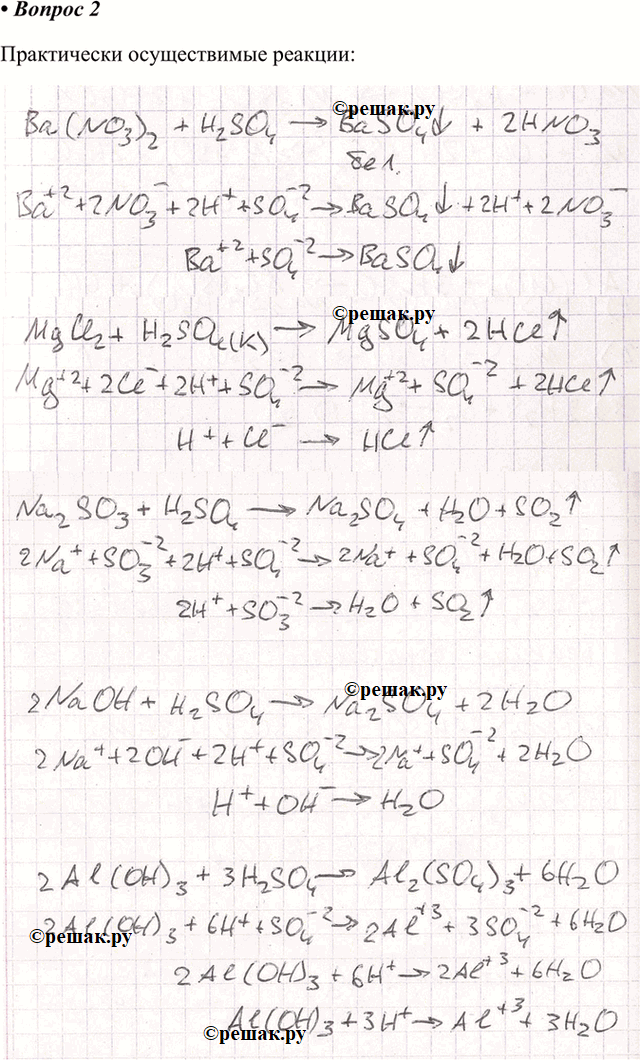 • Вопрос 2
Практически осуществимые реакции:
©решак.ру
Ba(NO₃)₂ + H₂SO₄ → BaSO₄↓ + 2HNO₃
бел.
Ba⁺² + 2NO₃⁻ + 2H⁺ + SO₄⁻² → BaSO₄↓ + 2H⁺ + 2NO₃⁻
Ba⁺² + SO₄⁻² → BaSO₄↓
©решак.ру
MgCl₂ + H₂SO₄(К) → MgSO₄ + 2HCl↑
Mg⁺² + 2Cl⁻ + 2H⁺ + SO₄⁻² → Mg⁺² + SO₄⁻² + 2HCl↑
H⁺ + Cl⁻ → HCl↑
Na₂SO₃ + H₂SO₄ → Na₂SO₄ + H₂O + SO₂↑
2Na⁺ + SO₃⁻² + 2H⁺ + SO₄⁻² → 2Na⁺ + SO₄⁻² + H₂O + SO₂↑
2H⁺ + SO₃⁻² → H₂O + SO₂↑
©решак.ру
2NaOH + H₂SO₄ → Na₂SO₄ + 2H₂O
2Na⁺ + 2OH⁻ + 2H⁺ + SO₄⁻² → 2Na⁺ + SO₄⁻² + 2H₂O
H⁺ + OH⁻ → H₂O
2Al(OH)₃ + 3H₂SO₄ → Al₂(SO₄)₃ + 6H₂O
2Al(OH)₃ + 6H⁺ + SO₄⁻² → 2Al⁺³ + 3SO₄⁻² + 6H₂O
©решак.ру
2Al(OH)₃ + 6H⁺ → 2Al⁺³ + 6H₂O
Al(OH)₃ + 3H⁺ → Al⁺³ + 3H₂O
©решак.ру